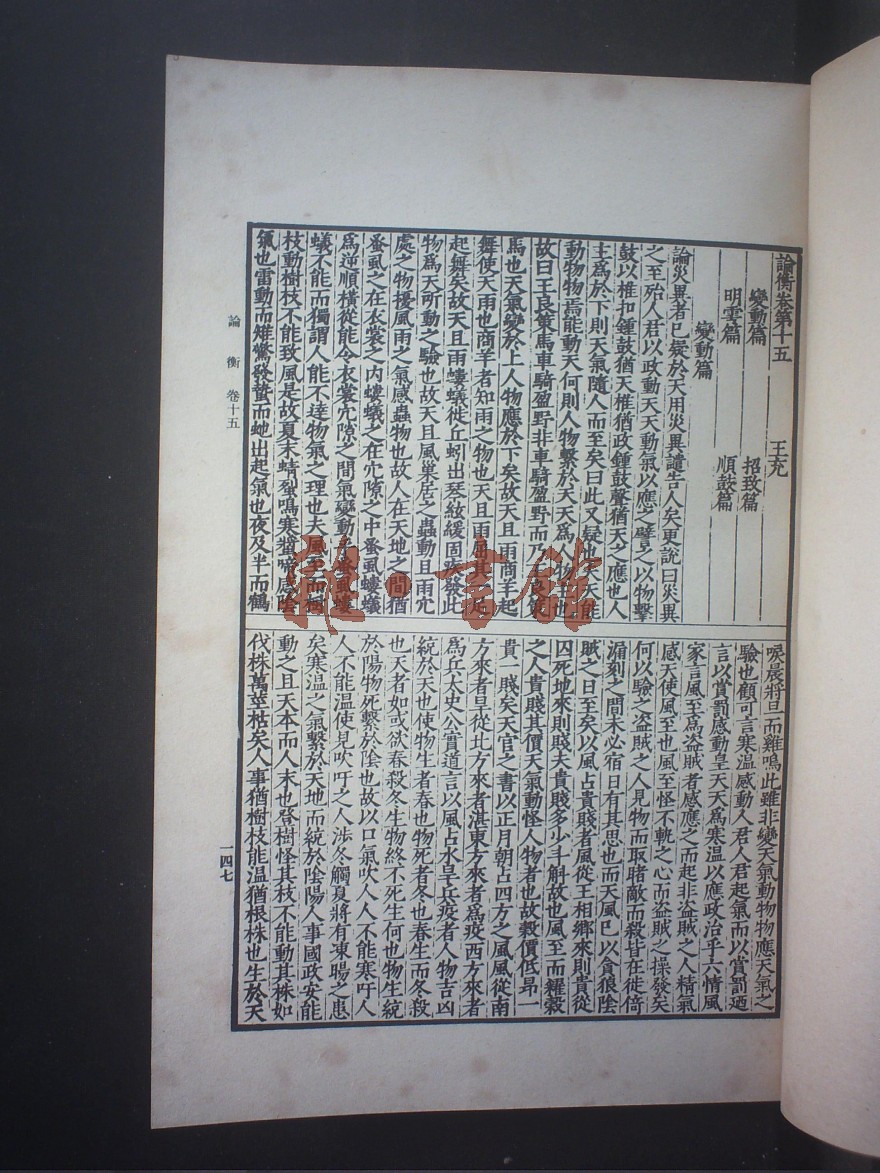 論衡卷第十五　王充
變動篇　招致篇
明雩篇　順鼓篇
變動篇
論災異者已疑於天用災異譴告人矣更說曰災異
之至殆人君以政動天天動氣以應之譬之以物擊
鼓以椎扣鍾鼓猶天椎猶政鍾鼓聲猶天之應也人
主爲於下則天氣隨人而至矣曰此又疑也夫天能
動物物焉能動天何則人物繫於天天爲人物主也
故曰王良策馬車騎盈野非車騎盈野而乃王良策
馬也天氣變於上人物應於下矣故天且雨商羊起
舞使天雨也商羊者知雨之物也天且雨屈其一足
起舞矣故天且雨螻蟻徙丘蚓出琴絃緩固疾發此
物爲天所動之驗也故天且風巢居之蟲動且雨穴
處之物擾風雨之氣感蟲物也故人在天地之間猶
蚤虱之在衣裳之内螻蟻之在穴隙之中蚤虱螻蟻
爲逆順橫從能令衣裳穴隙之間氣變動乎蚤虱螻
蟻不能而獨謂人能不達物氣之理也夫風至而樹
枝動樹枝不能致風是故夏末蜻䗁鳴寒螿啼感陰
氣也雷動而雉驚發蟄而虵出起氣也夜及半而鶴
唳晨將旦而雞鳴此雖非變天氣動物物應天氣之
驗也顧可言寒溫感動人君人君起氣而以賞罰迺
言以賞罰感動皇天天爲寒溫以應政治乎六情風
家言風至爲盜賊者感應之而起非盜賊之人精氣
感天使風至也風至怪不軌之心而盜賊之操發矣
何以驗之盜賊之人見物而取睹敵而殺皆在徙倚
漏刻之間未必宿日有其思也而天風已以貪狼陰
賊之日至矣以風占貴賤者風從王相鄉來則貴從
囚死地來則賤夫貴賤多少斗斛故也風至而糴穀
之人貴賤其價天氣動怪人物者也故穀價低昂一
貴一賤矣天官之書以正月朝占四方之風風從南
方來者旱從北方來者湛東方來者爲疫西方來者
爲兵太史公實道言以風占水旱兵疫者人物吉凶
統於天也使物生者春也物死者冬也春生而冬殺
也天者如或欲春殺冬生物終不死生何也物生統
於陽物死繫於陰也故以口氣吹人人不能寒吁人
人不能溫使見吹吁之人涉冬觸夏將有凍暘之患
矣寒溫之氣繫於天地而統於陰陽人事國政安能
動之且天本而人末也登樹怪其枝不能動其株如
伐株萬莖枯矣人事猶樹枝能溫猶根株也生於天
論衡　卷十五
一四七
雜·書館